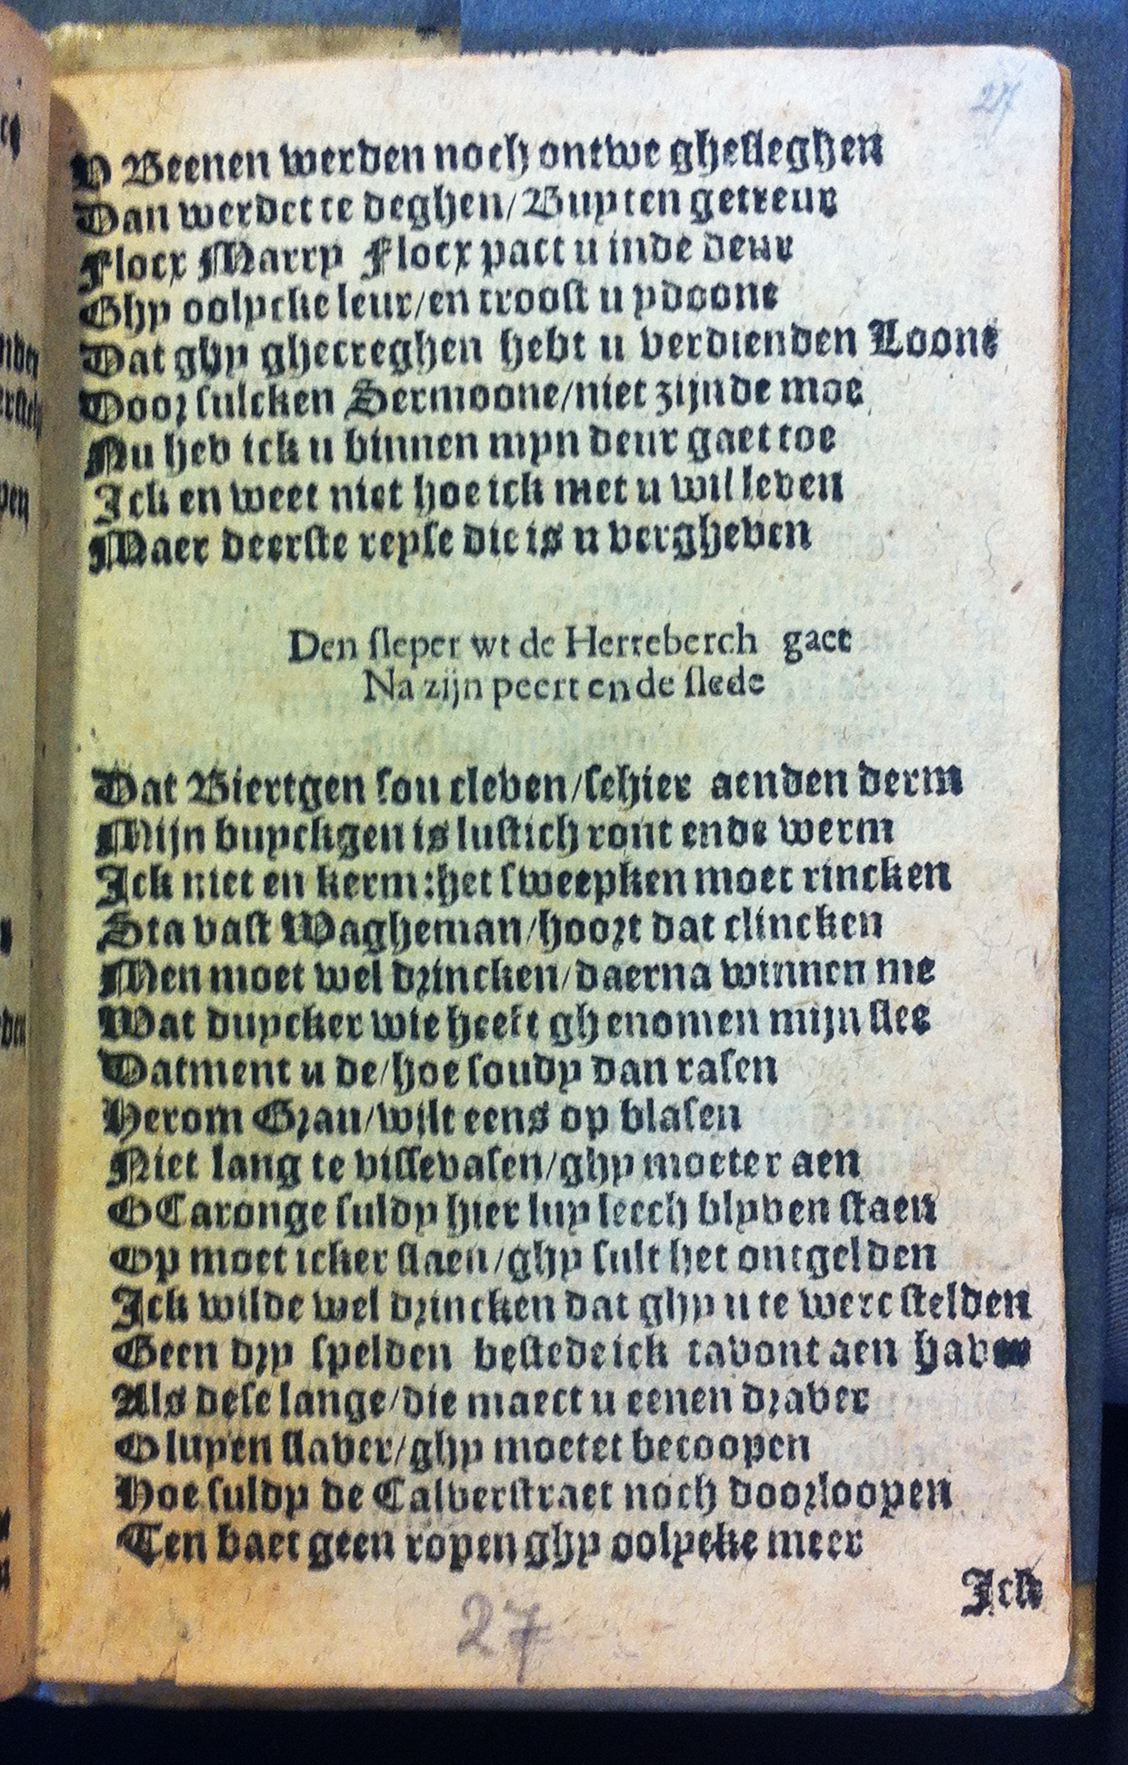 27
V Beenen werden noch ontwe ghesleghen
Dan werdet te deghen/Buyten getreur
Flocx Marry Flocx pact u inde deur
Ghy oolycke leur/en troost u ydoone
Dat ghy ghecreghen hebt u verdienden Loone
Door sulcken Sermoone/niet zijnde moe
Nu heb ick u binnen myn deur gaet toe
Ick en weet niet hoe ick met u wil leven
Maer deerste reyse die is u vergheven
Den sleper wt de Herreberch gaet
Na zijn peert ende slede
Dat Biertgen sou cleven/schier aenden derm
Mijn buyckgen is lustich ront ende werm
Ick niet en kerm:het sweepken moet rincken
Sta vast Wagheman/hoort dat clincken
Men moet wel drincken/daerna winnen me
Wat duycker wie heeft ghenomen mijn slee
Datment u de/hoe soudy dan rasen
Herom Grau/wilt eens op blasen
Niet lang te vissevasen/ghy moeter aen
O Caronge suldy hier luy leech blyven staen
Op moet icker slaen/ghy sult het ontgelden
Ick wilde wel drincken dat ghy u te werc stelden
Geen dry spelden bestede ick tavont aen haver
Als dese lange/die maect u eenen draver
O luyen slaver/ghy moetet becoopen
Hoe suldy de Calverstraet noch doorloopen
Ten baet geen ropen ghy oolyeke meer
Ick
27